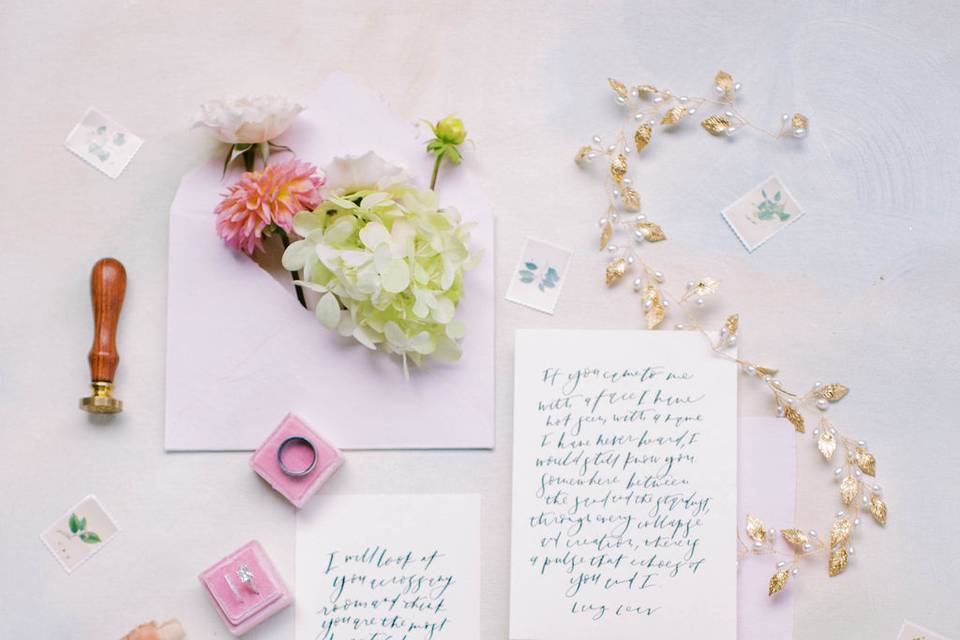 If you came to me
with a face I have
not seen, with a name
I have never heard, I
would still know you
somewhere between
the sand and the stardust,
through every collapse
and creation, there's
a pulse that echoes of
you and I.
Lang Leav
I will look at
you across any
room and think
you are the most